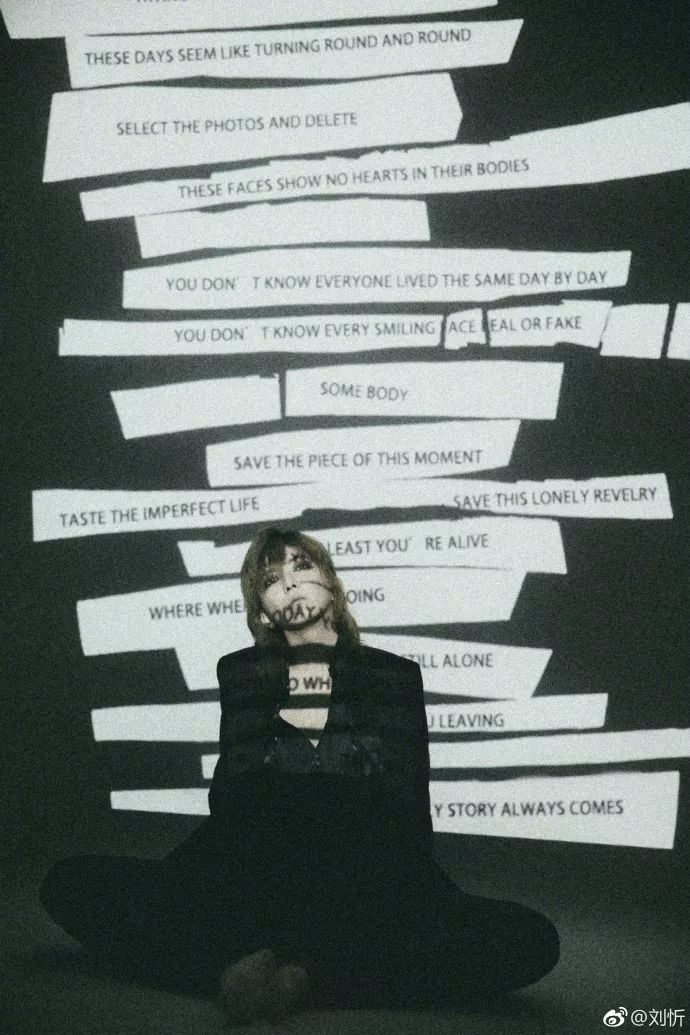 THESE DAYS SEEM LIKE TURNING ROUND AND ROUND
SELECT THE PHOTOS AND DELETE
THESE FACES SHOW NO HEARTS IN THEIR BODIES
YOU DON'T KNOW EVERYONE LIVED THE SAME DAY BY DAY
YOU DON'T KNOW EVERY SMILING ACE EAL OR FAKE
SOME BODY
SAVE THE PIECE OF THIS MOMENT
TASTE THE IMPERFECT LIFE SAVE THIS LONELY REVELRY
LEAST YOU'RE ALIVE
WHERE WHE OING
ODAY
ILL ALONE
O WH
U LEAVING
Y STORY ALWAYS COMES
@刘忻